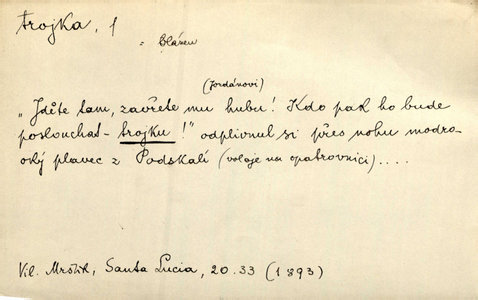 trojka, f
= blázen
(Jordánovi)
„Jděte tam, zavřete mu hubu! Kdo pak ho bude
poslouchat - trojku!" odplivnul si přes nohu modro-
oký plavec z Podskalí (volaje na opatrovnici)....
Vil. Mrštík, Santa Lucia, 20.33 (1893)